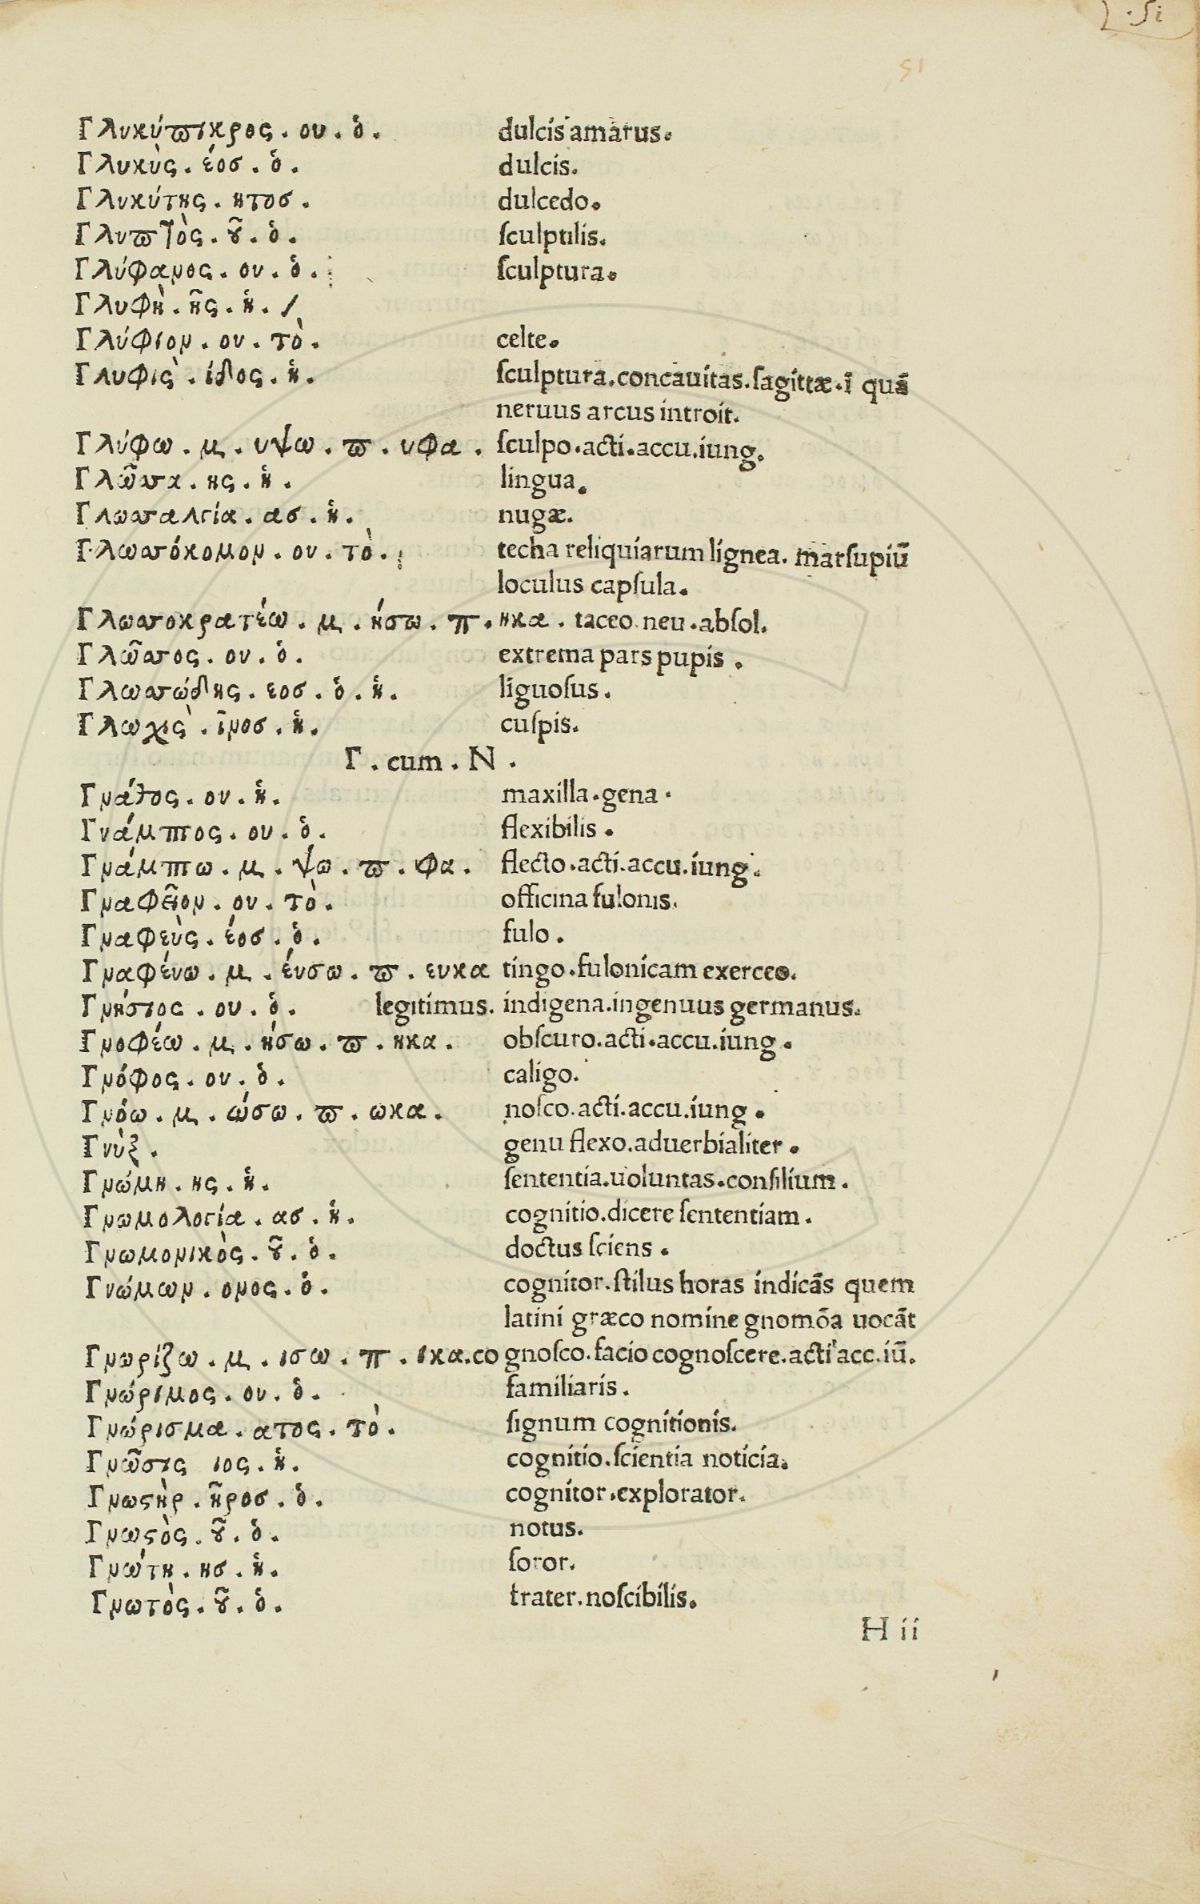 51
Γλυκύπικρος . ου . ὁ . dulcis amarus.
Γλυκὺς . έοσ . ὁ . dulcis.
Γλυκύτης . ητοσ . dulcedo.
Γλυπτὸς . ȣ͂ . ὁ . ſculptilis.
Γλύφανος . ου . ὁ . ſculptura.
Γλυφὴ . ῆς . ἡ .
Γλύφιον . ου . τὸ . celte.
Γλυφὶς . ίδος . ἡ . ſculptura.concauitas.ſagittæ.ī quā
neruus arcus introit.
Γλύφω . μ . υψω . π . υφα . ſculpo.acti.accu.iung.
Γλῶττα . ης . ἡ . lingua.
Γλωτταλγία . ασ . ἡ . nugæ.
Γλωττόκομον . ου . τὸ . techa reliquiarum lignea. marſupiū
loculus capſula.
Γλωττοκρατέω . μ . ήσω . π . ηκα . taceo neu.abſol.
Γλῶττος . ου . ὁ . extrema pars pupis .
Γλωττώδης . εοσ . ὁ . ἡ . liguoſus .
Γλωχὶς . ῖνοσ . ἡ . cuſpis.
Γ . cum . N .
Γνάθος . ου . ἡ . maxilla.gena .
Γνάμπτος . ου . ὁ . flexibilis .
Γνάμπτω . μ . ψω . π . φα . flecto.acti.accu.iung.
Γναφεῖον . ου . τὸ . officina fulonis.
Γναφεὺς . έοσ . ὁ . fulo .
Γναφένω . μ . ένσω . π . ευκα tingo.fulonicam exerceo.
Γνήσιος . ου . ὁ . legitimus. indigena.ingenuus germanus.
Γνοφέω . μ . ήσω . π . ηκα . obſcuro.acti.accu.iung .
Γνόφος . ου . ὁ . caligo.
Γνόω . μ . ώσω . π . ωκα . noſco.acti.accu.iung .
Γνὺξ . genu flexo.aduerbialiter .
Γνώμη . ης . ἡ . ſententia.uoluntas.conſilium .
Γνωμολογία . ασ . ἡ . cognitio.dicere ſententiam .
Γνωμονικὸς . ȣ͂ . ὁ . doctus ſciens .
Γνώμων . ονος . ὁ . cognitor.ſtilus horas indicās quem
latini græco nomine gnomōa uocāt
Γνωρίζω . μ . ισω . π . ικα.co gnoſco.facio cognoſcere.acti acc.iū.
Γνώριμος . ου . ὁ . familiaris .
Γνώρισμα . ατος . τὸ . ſignum cognitionis.
Γνῶσις ιος . ἡ . cognitio.ſcientia noticia.
Γνωϛὴρ . ῆροσ . ὁ . cognitor.explorator.
Γνωϛὸς . ȣ͂ . ὁ . notus.
Γνώτη . ησ . ἡ . ſoror.
Γνωτὸς . ȣ͂ . ὁ . frater.noſcibilis.
H ii